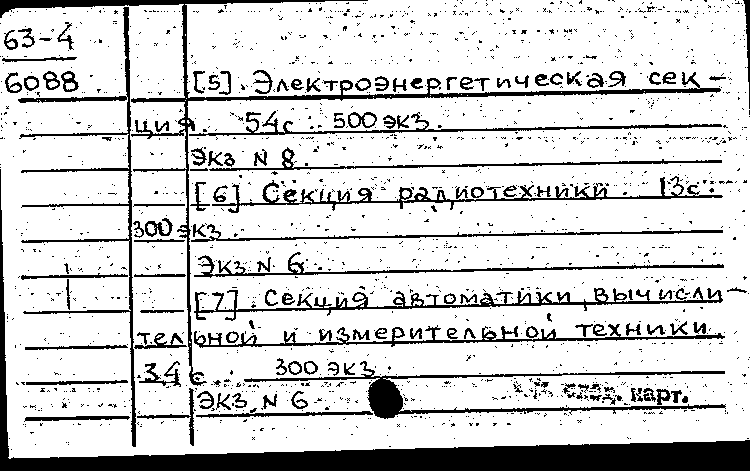 63-4
6088 [5]. Электроэнергетическая сек-
ция. 54с. 500 экз.
Экз N 8.
[6] Секция радиотехники. 13с.
300 экз.
Экз N 6.
[7]. Секция автоматики, вычисли-
тельной и измерительной техники.
34с. 300 экз.
Экз. N 6.
след. карт.